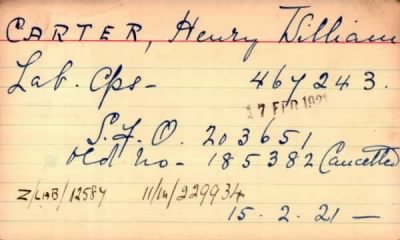 CARTER, Henry William
Lab. Cps - 467243.
17 FEB 1921
S.F.O. 203651
Old No - 185382 Cancelled
Z/LAB/12587 11/M/229934
15.2.21 —